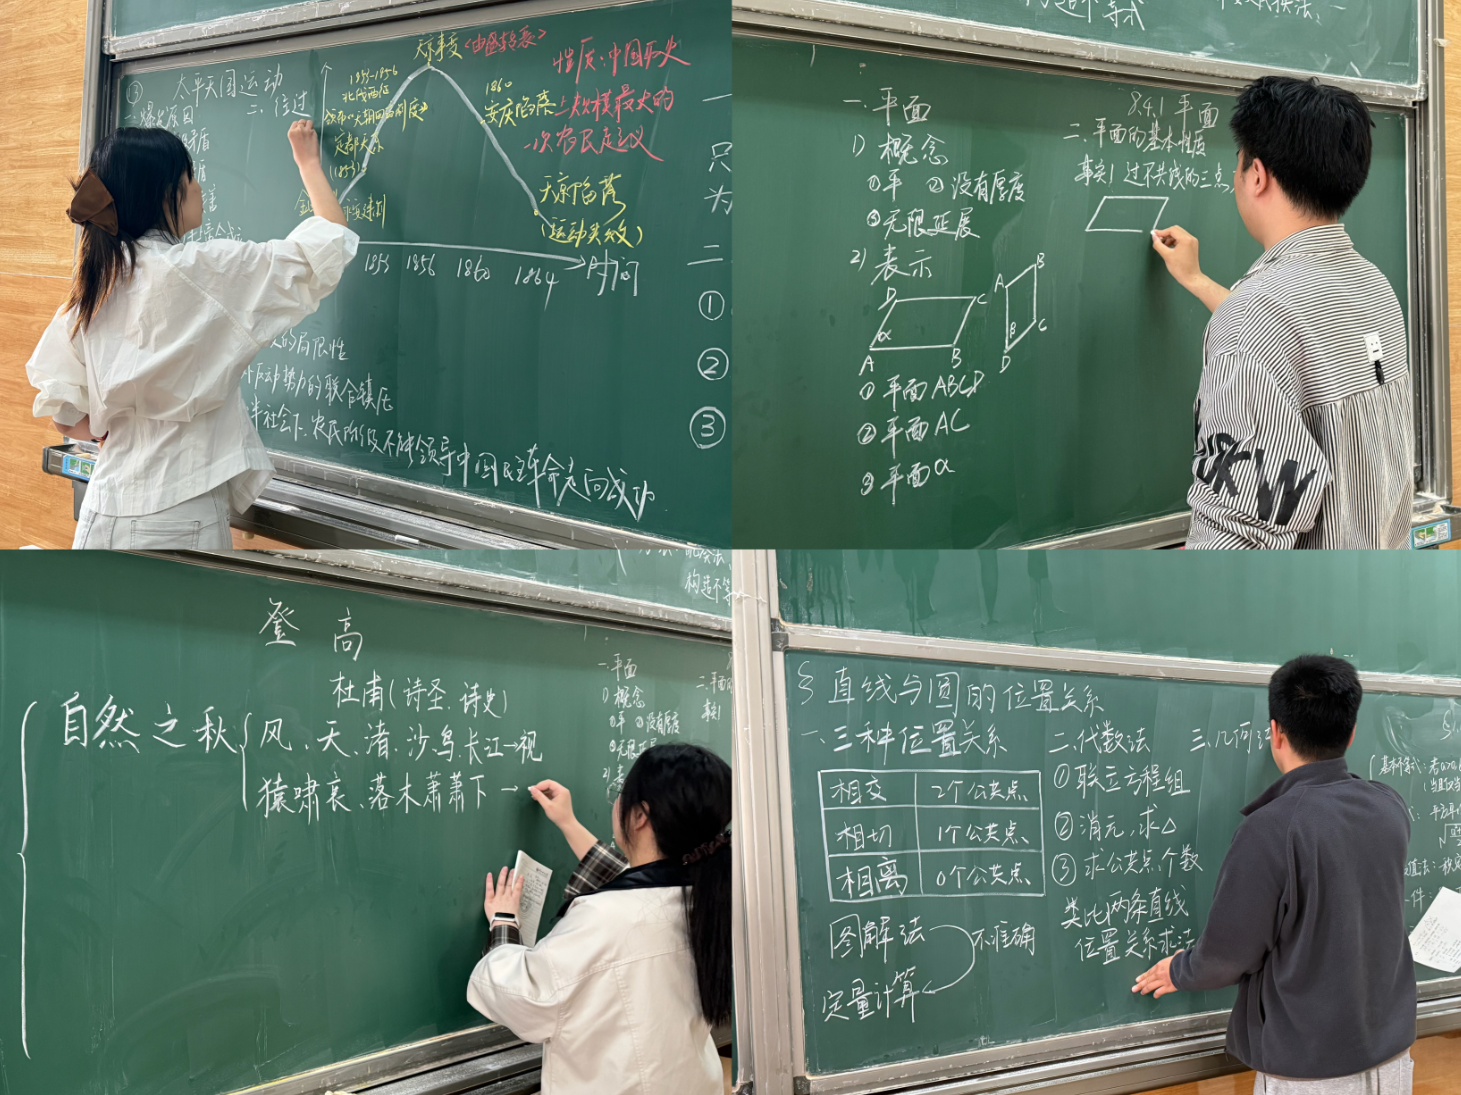 太平天国运动
一、爆发原因
二、经过
天京事变《由盛转衰》
1853-1856
北伐西征
定都天京
(1853)
1860
安庆陷落
天京陷落
(运动失败)
1853 1856 1860 1864 时间
性质:中国历史
上规模最大的
一次农民起义
的局限性
势力的联合镇压
半社会下,农民阶级不能领导中国民主革命走向成功
只
为
二
①
②
③
不等式
8.4.1 平面
一.平面
1) 概念
①平 ②没有厚度
③无限延展
2) 表示
D C
α
A B
B
A
β C
D
①平面ABCD
②平面AC
③平面α
二.平面的基本性质
事实1 过不共线的三点,
构造不等
登高
杜甫(诗圣.诗史)
自然之秋
风、天、渚、沙、鸟、长江→视
猿啸哀、落木萧萧下→
一.平面
1) 概念
①平 ②没有厚度
③无限延展
2)
二.平面
事实1
§直线与圆的位置关系
一、三种位置关系
相交 2个公共点
相切 1个公共点
相离 0个公共点
图解法 不准确
定量计算
二.代数法
①联立方程组
②消元,求△
③求公共点个数
类比两条直线
位置关系求法
三、几何法
基本不等式:若